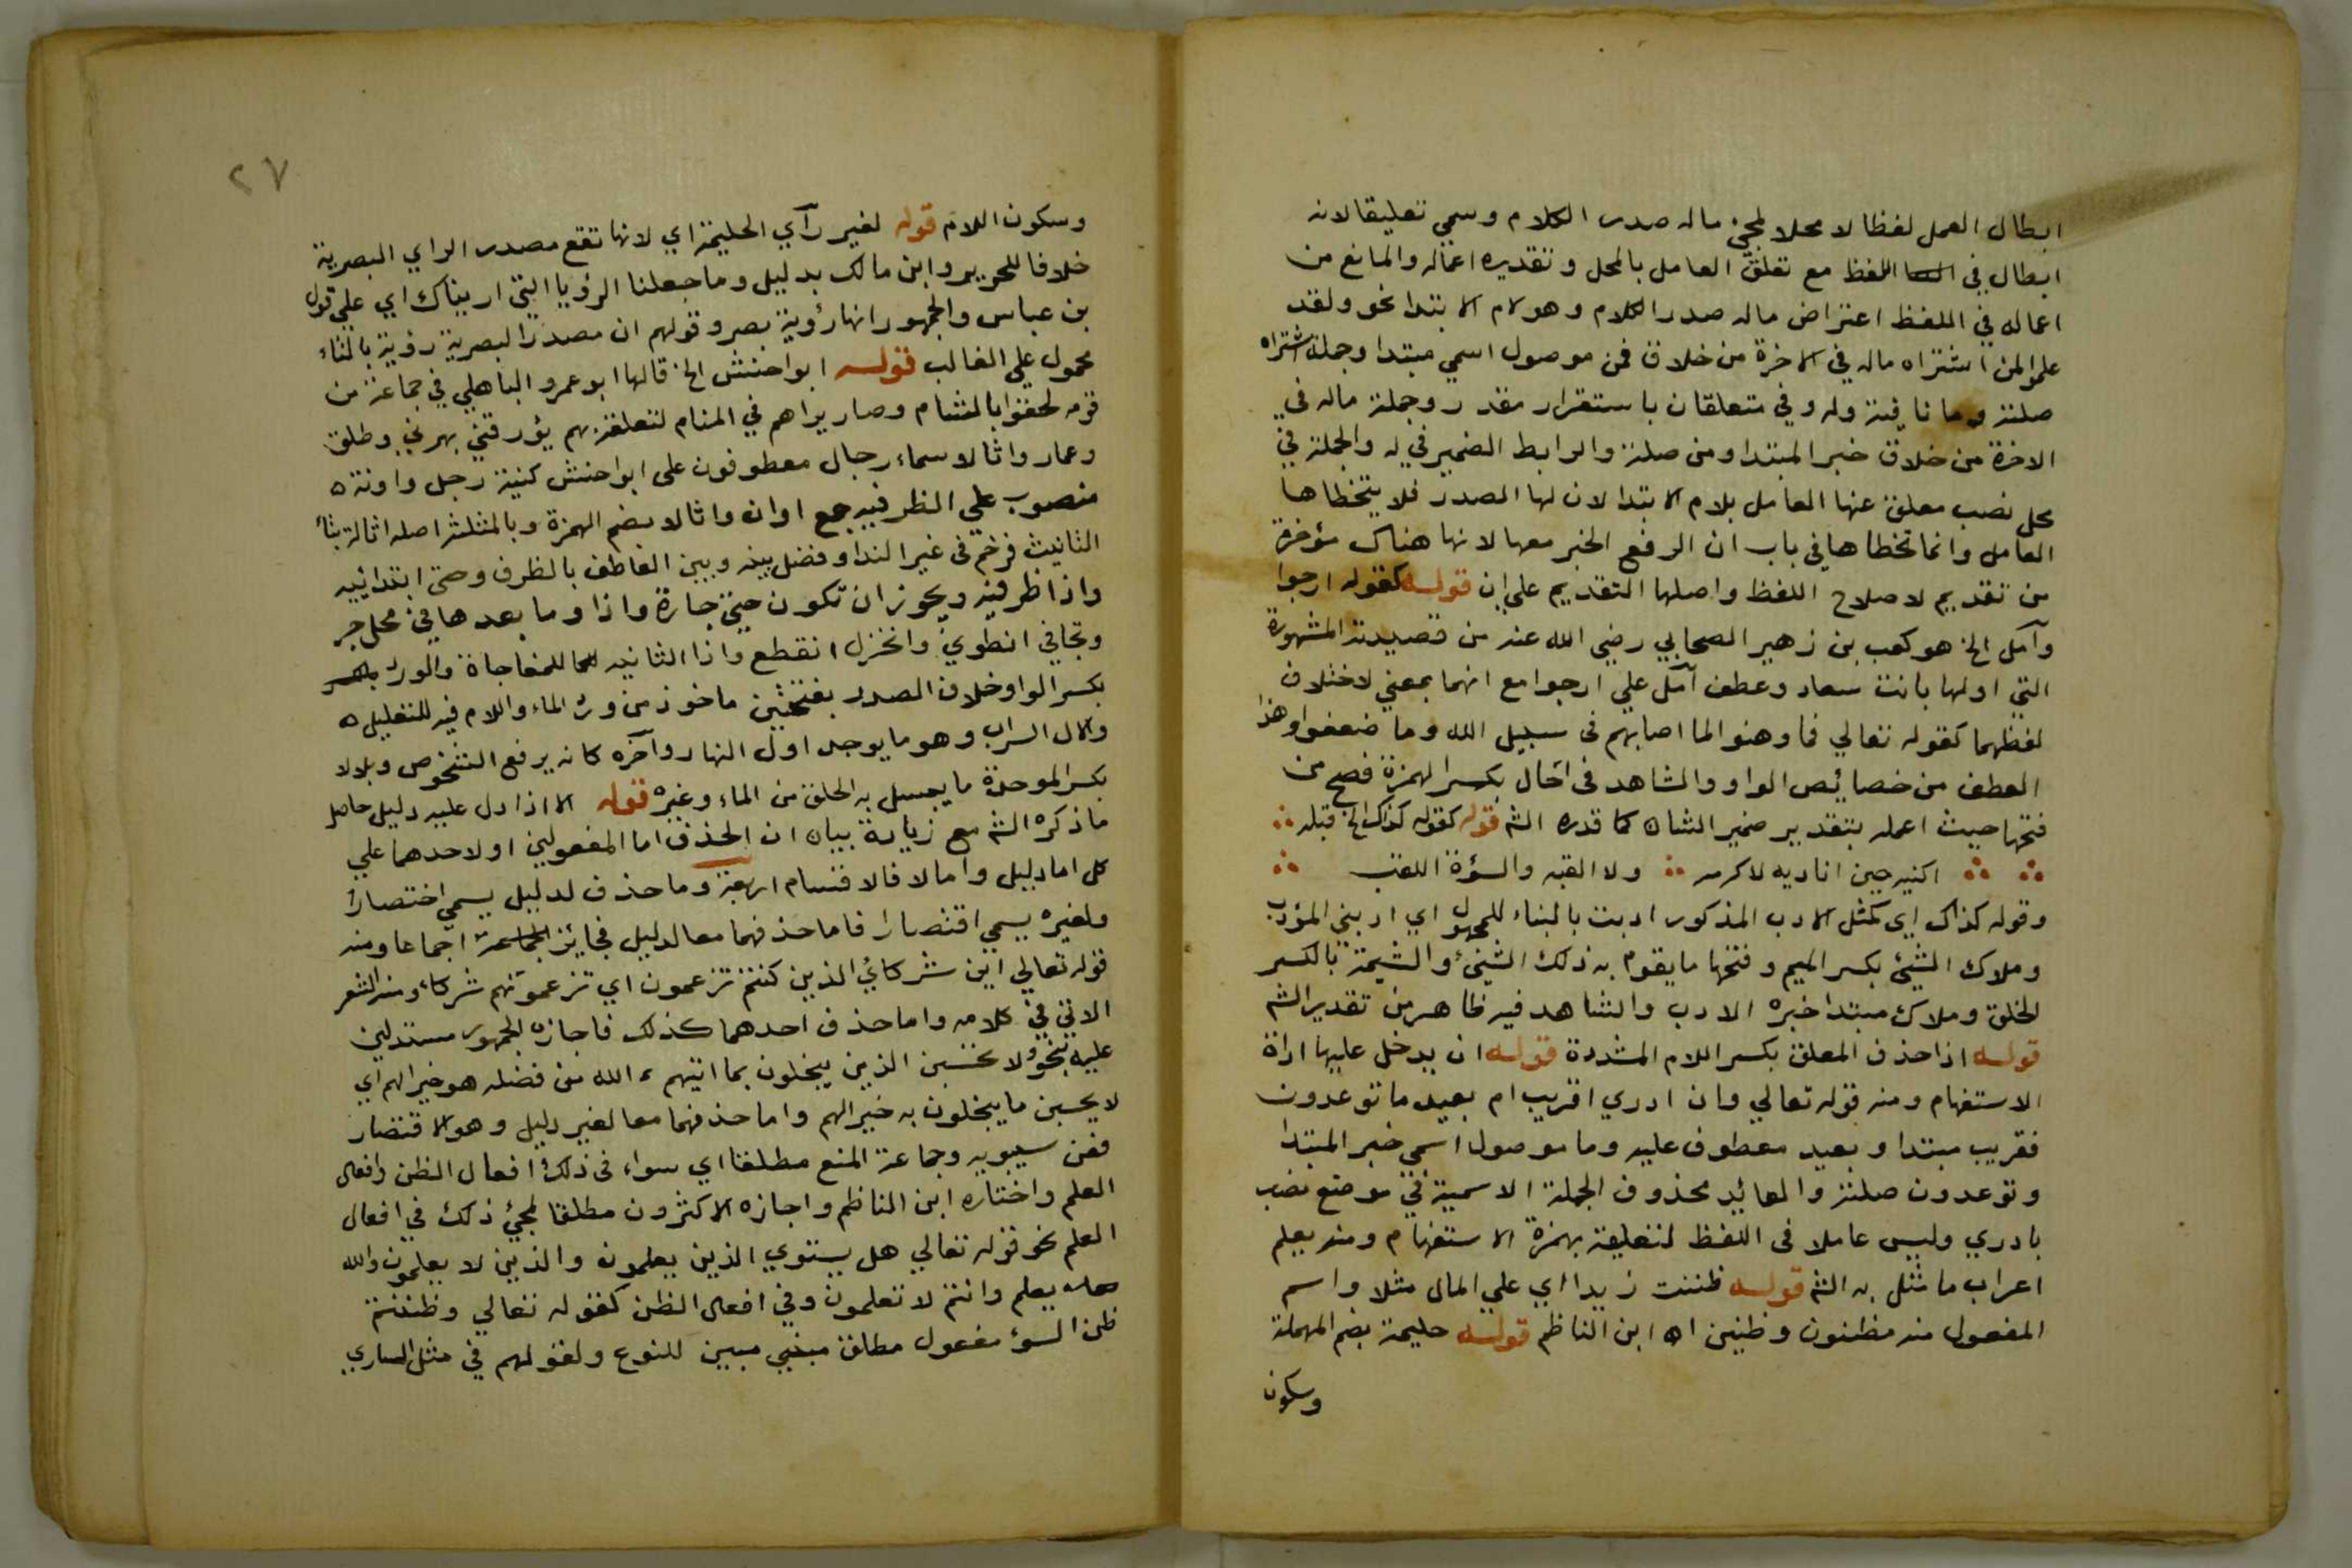 ابطال العمل لفظا لا محلا لمجئ ماله صدر الكلام وسمي تعليقا لانه
ابطال في اللفظ مع تعلق العامل بالمحل وتقديره اعماله والمانع من
اعماله في اللفظ اعتراض ماله صدر الكلام وهو لام الابتدا نحو ولقد
علموا لمن اشتراه ماله في الاخرة من خلاق فمن موصول اسمي مبتدا وجملة اشتراه
صلته وما نافية وله وفي متعلقان باستقرار مقدر وجملة ماله في
الاخرة من خلاق خبر المبتدا ومن صلة والرابط الضمير في له والجملة في
محل نصب معلق عنها العامل بلام الابتدا لان لها الصدر فلا يتخطاها
العامل وانما تخطاها في باب ان الرفع الخبر معها لانها هناك مؤخرة
من تقديم لاصلاح اللفظ واصلها التقديم على ان قوله كقوله ارجوا
وآمل الخ هو كعب بن زهير الصحابي رضي الله عنه من قصيدته المشهورة
التي اولها بانت سعاد وعطف آمل علي ارجوا مع انهما بمعني لاختلاف
لفظهما كقوله تعالي فما وهنوا لما اصابهم في سبيل الله وما ضعفوا وهذا
العطف من خصائص الواو والشاهد في اخال بكسر الهمزة فصح من
فتحها حيث اعمله بتقدير ضمير الشان كما قدره الشم قوله كقوله كذاك الخ قبله
اكنيه حين اناديه لاكرمه ولا القبه والسؤة اللقب
وقوله كذاك اي كمثل الادب المذكور ادبت بالبناء للمجهول اي ادبني المؤدب
وملاك الشئ بكسر الميم وفتحها ما يقوم به ذلك الشئ والشيمة بالكسر
الخلق وملاك مبتدا خبره الادب والشاهد فيه ظاهر من تقدير الشم
قوله اذا حذف المعلق بكسر اللام المشددة قوله ان يدخل عليها اداة
الاستفهام ومنه قوله تعالي وان ادري اقريب ام بعيد ما توعدون
فقريب مبتدا وبعيد معطوف عليه وما موصول اسمي خبر المبتدا
وتوعدون صلته والعائد محذوف الجملة الاسمية في موضع نصب
بادري وليس عاملا في اللفظ لتعليقه بهمزة الاستفهام ومنه يعلم
اعراب ما مثل به الشم قوله ظننت زيدا اي علي المال مثلا واسم
المفعول منه مظنون وظنين اه ابن الناظم قوله حليمة بضم المهملة
وسكون
٢٧
وسكون اللام قوله لغير رآي الحليمة اي لانها تقع مصدر الراي البصرية
خلافا للحريري وابن مالك بدليل وما جعلنا الرؤيا التي اريناك اي علي قول
بن عباس والجمهور انها رؤية بصر وقولهم ان مصدر البصرية رؤية بالتاء
محمول علي الغالب قوله ابو احنش الخ قالها ابو عمرو الباهلي في جماعة من
قومه لحقوا بالشام وصار يراهم في المنام لتعلقه بهم يؤرقني بهرني وطلق
وعمار واثالا سماء رجال معطوفون على ابو احنش كنية رجل واونة ه
منصوب علي الظرفيه جمع اوان واثالا بضم الهمزة وبالمثلثه اصله اثالة بتاء
التانيث فرخم في غير الندا وفضل بينه وبين العاطف بالظرف وحتى ابتدائيه
واذا ظرفيه ويجوز ان تكون حتي جارة واذا وما بعدها في محل جر
وتجافي انطوي وانخزل انقطع واذا الثانيه للمفاجاة والورد
بكسر الواو خلاف الصدر بفتحتين ماخوذ من ورد الماء واللام فيه للتعليل ه
والال السراب وهو ما يوجد اول النهار وآخره كانه يرفع الشخوص وبلالا
بكسر الموحدة ما يبتل به الحلق من الماء وغيره قوله الا اذا دل عليه دليل حاصل
ما ذكره الشم مع زيادة بيان ان الحذف اما المفعولين او لاحدهما علي
كل اما دليل واما لا فالاقسام اربعة وما حذف لدليل يسمي اختصارا
ولغيره يسمي اقتصارا فاما حذفهما معا لدليل فجائز اجماعا ومنه
قوله تعالي اين شركائي الذين كنتم تزعمون اي تزعمونهم شركاء ومنه الشعر
الاتي في كلامه واما حذف احدهما كذلك فاجازه الجمهور مستدلين
عليه بنحو ولا تحسبن الذين يبخلون بما اتيهم الله من فضله هو خيرا لهم اي
لا يحسبن ما يبخلون به خيرا لهم واما حذفهما معا لغير دليل وهو الاقتصار
فعن سيبويه وجماعة المنع مطلقا اي سواء في ذلك افعال الظن وافعال
العلم واختاره ابن الناظم واجازه الاكثرون مطلقا لمجئ ذلك في افعال
العلم نحو قوله تعالي هل يستوي الذين يعلمون والذين لا يعلمون والله
يعلم وانتم لا تعلمون وفي افعال الظن كقوله تعالي وظننتم
ظن السؤ مفعول مطلق مبين للنوع ولقولهم في مثل الساري